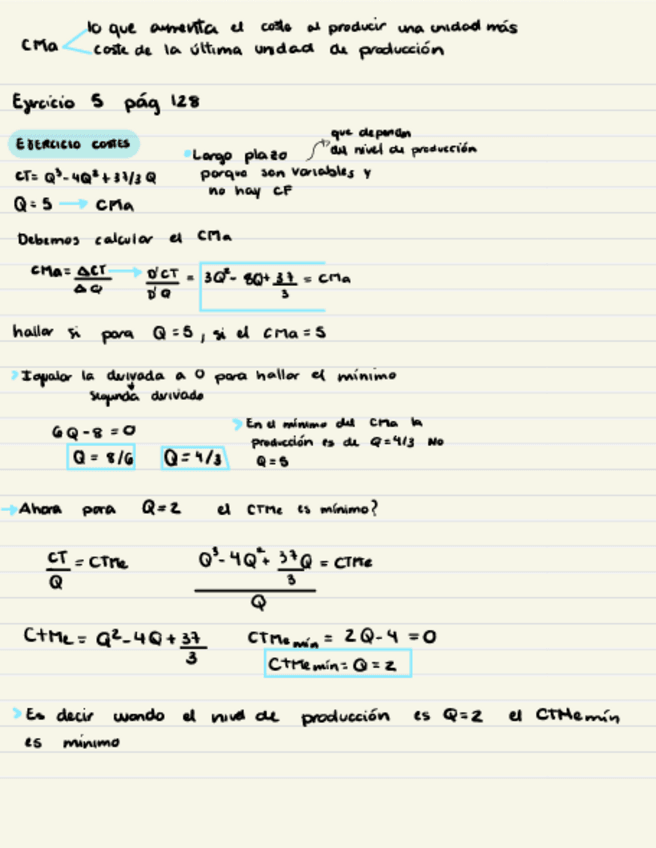 lo que aumenta el coste al producir una unidad más
CMa
coste de la última unidad de producción
Ejercicio 5 pág 128
EJERCICIO COSTES
que dependen
del nivel de producción
Largo plazo
porque son variables y
no hay CF
CT= Q³-4Q²+37/3 Q
Q=5 → CMa
Debemos calcular el CMa
CMa= ΔCT/ΔQ → D'CT/D'Q = 3Q²- 8Q+ 37/3 = CMa
hallar si para Q=5, si el CMa=5
> Igualar la derivada a 0 para hallar el mínimo
segunda derivada
6Q-8=0
Q= 8/6 Q=4/3
> En el mínimo del CMa la
producción es de Q=4/3 No
Q=5
→ Ahora para Q=2 el CTMe es mínimo?
CT/Q = CTMe
Q³-4Q²+ 37/3 Q = CTMe
Q
CtMe= Q²-4Q+ 37/3
CTMe mín = 2Q-4 =0
CtMe mín= Q=2
> Es decir cuando el nivel de producción es Q=2 el CTMe mín
es mínimo